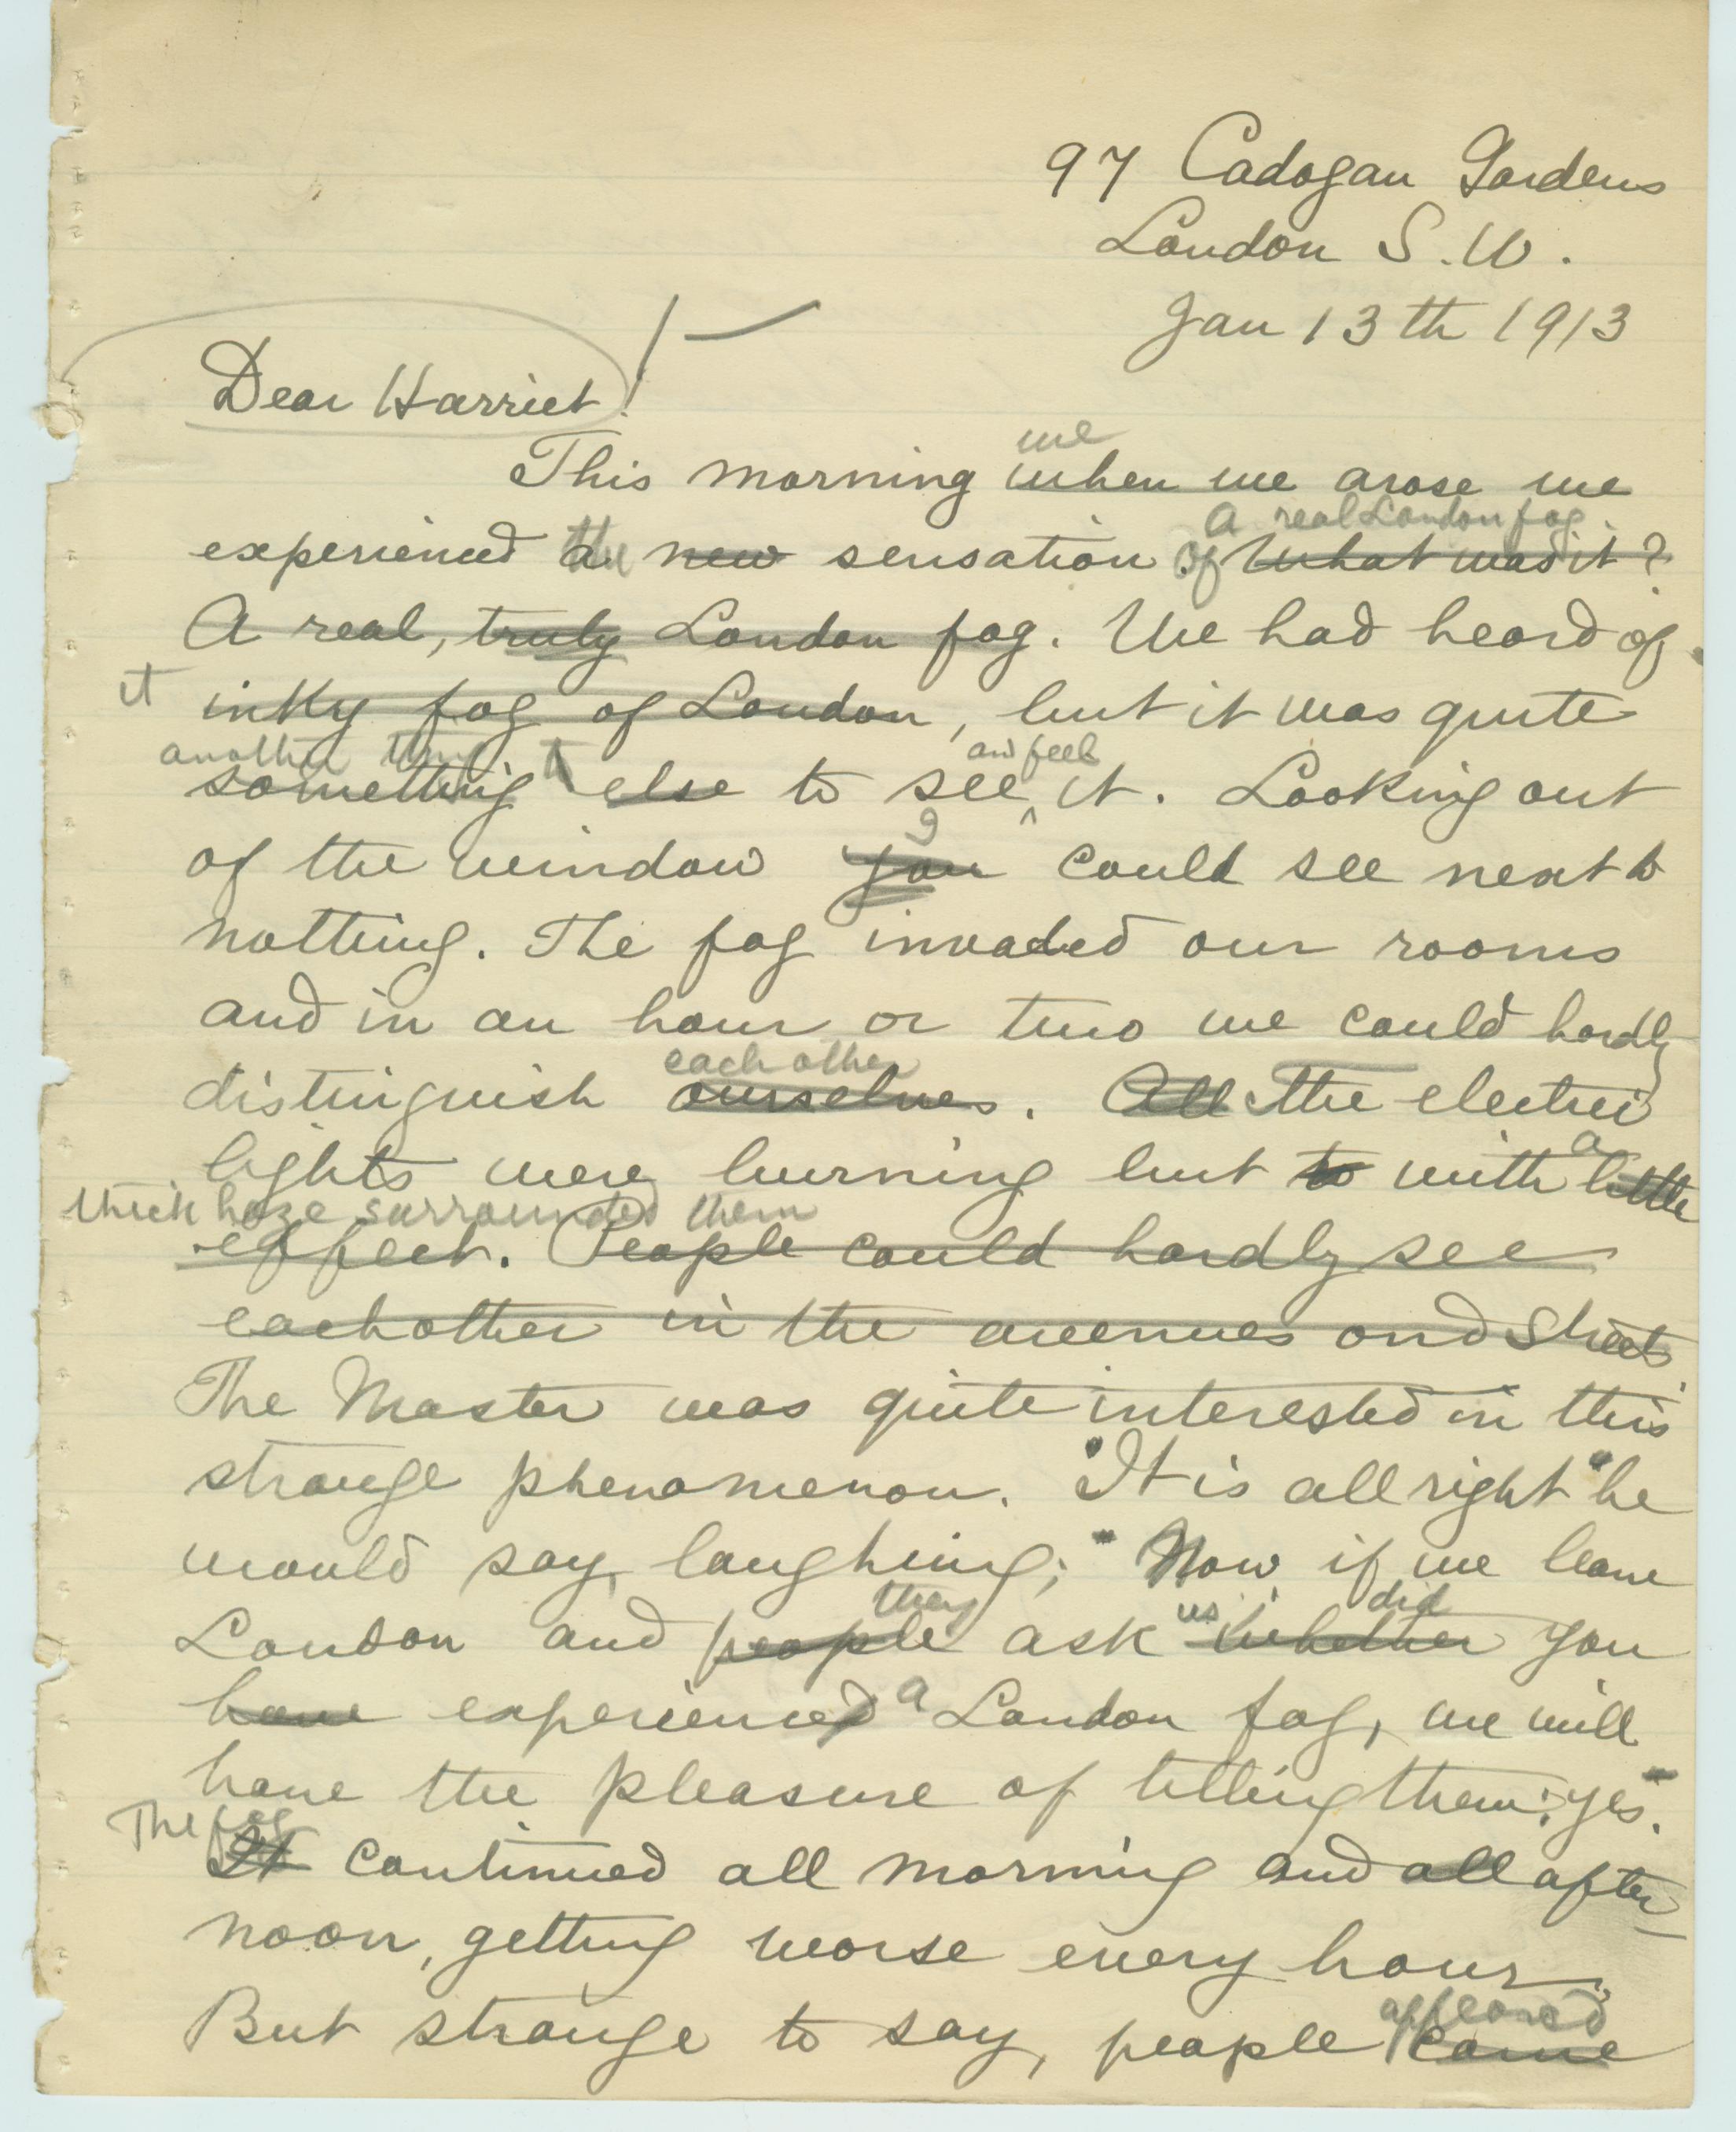 97 Cadogan Gardens
London S.W.
Jan 13th 1913
Dear Harriet!
we
This morning when we arose we
a real London fog
experienced a the new sensation. of What was it?
A real, truly London fog. We had heard of
it inky fog of London, but it was quite
another thing and feel
something else to see ^ it. Looking out
I
of the window you could see next to
nothing. The fog invaded our rooms
and in an hour or two we could hardly
each other
distinguish ourselves. All the electric
a
lights were burning but to with little
thick haze surrounded them
effect. People could hardly see
eachother in the avenues and streets
The Master was quite interested in this
strange phenomenon. "It is all right" he
would say, laughing; "Now if we leave
they us did
London and people ask whether you
have experienced a London fog, we will
have the pleasure of telling them: yes".
The fog
It continued all morning and all after-
noon, getting worse every hour.
appeared
But strange to say, people came